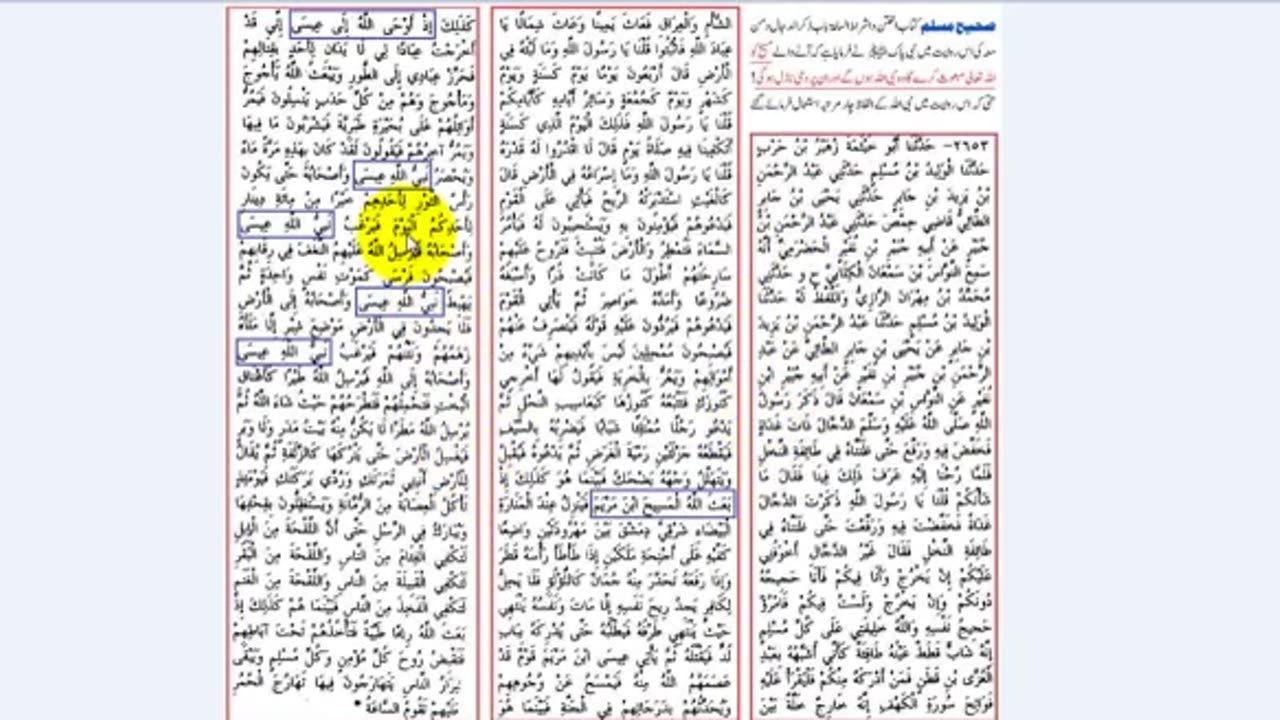 صحیح مسلم کتاب الفتن واشراط الساعۃ باب ذکر الدجال ومن
معہ کی اس روایت میں نبی پاک ﷺ نے فرمایا ہے کہ آنے والے مسیح کو
اللہ تعالیٰ مبعوث کرے گا وہ نبی اللہ ہوں گے اور ان پر وحی نازل ہو گی!
حتی کہ اس روایت میں نبی اللہ کے الفاظ چار مرتبہ استعمال فرمائے گئے
٢٦٥٣- حَدَّثَنَا أَبُو خَيْثَمَةَ زُهَيْرُ بْنُ حَرْبٍ
حَدَّثَنَا الْوَلِيدُ بْنُ مُسْلِمٍ حَدَّثَنِي عَبْدُ الرَّحْمَنِ
بْنُ يَزِيدَ بْنِ جَابِرٍ حَدَّثَنِي يَحْيَى بْنُ جَابِرٍ
الطَّائِيُّ قَاضِي حِمْصَ حَدَّثَنِي عَبْدُ الرَّحْمَنِ بْنُ
جُبَيْرٍ عَنْ أَبِيهِ جُبَيْرِ بْنِ نُفَيْرٍ الْحَضْرَمِيِّ أَنَّهُ
سَمِعَ النَّوَّاسَ بْنَ سَمْعَانَ الْكِلَابِيَّ ح و حَدَّثَنِي
مُحَمَّدُ بْنُ مِهْرَانَ الرَّازِيُّ وَاللَّفْظُ لَهُ حَدَّثَنَا
الْوَلِيدُ بْنُ مُسْلِمٍ حَدَّثَنَا عَبْدُ الرَّحْمَنِ بْنُ يَزِيدَ
بْنِ جَابِرٍ عَنْ يَحْيَى بْنِ جَابِرٍ الطَّائِيِّ عَنْ عَبْدِ
الرَّحْمَنِ بْنِ جُبَيْرِ بْنِ نُفَيْرٍ عَنْ أَبِيهِ جُبَيْرِ ابْنِ
نُفَيْرٍ عَنِ النَّوَّاسِ بْنِ سَمْعَانَ قَالَ ذَكَرَ رَسُولُ
اللَّهِ صَلَّى اللَّهُ عَلَيْهِ وَسَلَّمَ الدَّجَّالَ ذَاتَ غَدَاةٍ
فَخَفَّضَ فِيهِ وَرَفَّعَ حَتَّى ظَنَنَّاهُ فِي طَائِفَةِ النَّخْلِ
فَلَمَّا رُحْنَا إِلَيْهِ عَرَفَ ذَلِكَ فِينَا فَقَالَ مَا
شَأْنُكُمْ قُلْنَا يَا رَسُولَ اللَّهِ ذَكَرْتَ الدَّجَّالَ
غَدَاةً فَخَفَّضْتَ فِيهِ وَرَفَّعْتَ حَتَّى ظَنَنَّاهُ فِي
طَائِفَةِ النَّخْلِ فَقَالَ غَيْرُ الدَّجَّالِ أَخْوَفُنِي
عَلَيْكُمْ إِنْ يَخْرُجْ وَأَنَا فِيكُمْ فَأَنَا حَجِيجُهُ
دُونَكُمْ وَإِنْ يَخْرُجْ وَلَسْتُ فِيكُمْ فَامْرُؤٌ
حَجِيجُ نَفْسِهِ وَاللَّهُ خَلِيفَتِي عَلَى كُلِّ مُسْلِمٍ
إِنَّهُ شَابٌّ قَطَطٌ عَيْنُهُ طَافِئَةٌ كَأَنِّي أُشَبِّهُهُ بِعَبْدِ
الْعُزَّى بْنِ قَطَنٍ فَمَنْ أَدْرَكَهُ مِنْكُمْ فَلْيَقْرَأْ عَلَيْهِ
فَوَاتِحَ سُورَةِ الْكَهْفِ إِنَّهُ خَارِجٌ خَلَّةً بَيْنَ
الشَّأْمِ وَالْعِرَاقِ فَعَاثَ يَمِينًا وَعَاثَ شِمَالًا يَا
عِبَادَ اللَّهِ فَاثْبُتُوا قُلْنَا يَا رَسُولَ اللَّهِ وَمَا لَبْثُهُ فِي
الْأَرْضِ قَالَ أَرْبَعُونَ يَوْمًا يَوْمٌ كَسَنَةٍ وَيَوْمٌ
كَشَهْرٍ وَيَوْمٌ كَجُمُعَةٍ وَسَائِرُ أَيَّامِهِ كَأَيَّامِكُمْ
قُلْنَا يَا رَسُولَ اللَّهِ فَذَلِكَ الْيَوْمُ الَّذِي كَسَنَةٍ
أَتَكْفِينَا فِيهِ صَلَاةُ يَوْمٍ قَالَ لَا اقْدُرُوا لَهُ قَدْرَهُ
قُلْنَا يَا رَسُولَ اللَّهِ وَمَا إِسْرَاعُهُ فِي الْأَرْضِ قَالَ
كَالْغَيْثِ اسْتَدْبَرَتْهُ الرِّيحُ فَيَأْتِي عَلَى الْقَوْمِ
فَيَدْعُوهُمْ فَيُؤْمِنُونَ بِهِ وَيَسْتَجِيبُونَ لَهُ فَيَأْمُرُ
السَّمَاءَ فَتُمْطِرُ وَالْأَرْضَ فَتُنْبِتُ فَتَرُوحُ عَلَيْهِمْ
سَارِحَتُهُمْ أَطْوَلَ مَا كَانَتْ ذُرًا وَأَسْبَغَهُ
ضُرُوعًا وَأَمَدَّهُ خَوَاصِرَ ثُمَّ يَأْتِي الْقَوْمَ
فَيَدْعُوهُمْ فَيَرُدُّونَ عَلَيْهِ قَوْلَهُ فَيَنْصَرِفُ عَنْهُمْ
فَيُصْبِحُونَ مُمْحِلِينَ لَيْسَ بِأَيْدِيهِمْ شَيْءٌ مِنْ
أَمْوَالِهِمْ وَيَمُرُّ بِالْخَرِبَةِ فَيَقُولُ لَهَا أَخْرِجِي
كُنُوزَكِ فَتَتْبَعُهُ كُنُوزُهَا كَيَعَاسِيبِ النَّحْلِ ثُمَّ
يَدْعُو رَجُلًا مُمْتَلِئًا شَبَابًا فَيَضْرِبُهُ بِالسَّيْفِ
فَيَقْطَعُهُ جَزْلَتَيْنِ رَمْيَةَ الْغَرَضِ ثُمَّ يَدْعُوهُ فَيُقْبِلُ
وَيَتَهَلَّلُ وَجْهُهُ يَضْحَكُ فَبَيْنَمَا هُوَ كَذَلِكَ إِذْ
بَعَثَ اللَّهُ الْمَسِيحَ ابْنَ مَرْيَمَ فَيَنْزِلُ عِنْدَ الْمَنَارَةِ
الْبَيْضَاءِ شَرْقِيَّ دِمَشْقَ بَيْنَ مَهْرُودَتَيْنِ وَاضِعًا
كَفَّيْهِ عَلَى أَجْنِحَةِ مَلَكَيْنِ إِذَا طَأْطَأَ رَأْسَهُ قَطَرَ
وَإِذَا رَفَعَهُ تَحَدَّرَ مِنْهُ جُمَانٌ كَاللُّؤْلُؤِ فَلَا يَحِلُّ
لِكَافِرٍ يَجِدُ رِيحَ نَفَسِهِ إِلَّا مَاتَ وَنَفَسُهُ يَنْتَهِي
حَيْثُ يَنْتَهِي طَرْفُهُ فَيَطْلُبُهُ حَتَّى يُدْرِكَهُ بِبَابِ
لُدٍّ فَيَقْتُلُهُ ثُمَّ يَأْتِي عِيسَى ابْنَ مَرْيَمَ قَوْمٌ قَدْ
عَصَمَهُمُ اللَّهُ مِنْهُ فَيَمْسَحُ عَنْ وُجُوهِهِمْ
وَيُحَدِّثُهُمْ بِدَرَجَاتِهِمْ فِي الْجَنَّةِ فَبَيْنَمَا هُوَ
كَذَلِكَ إِذْ أَوْحَى اللَّهُ إِلَى عِيسَى إِنِّي قَدْ
أَخْرَجْتُ عِبَادًا لِي لَا يَدَانِ لِأَحَدٍ بِقِتَالِهِمْ
فَحَرِّزْ عِبَادِي إِلَى الطُّورِ وَيَبْعَثُ اللَّهُ يَأْجُوجَ
وَمَأْجُوجَ وَهُمْ مِنْ كُلِّ حَدَبٍ يَنْسِلُونَ فَيَمُرُّ
أَوَائِلُهُمْ عَلَى بُحَيْرَةِ طَبَرِيَّةَ فَيَشْرَبُونَ مَا فِيهَا
وَيَمُرُّ آخِرُهُمْ فَيَقُولُونَ لَقَدْ كَانَ بِهَذِهِ مَرَّةً مَاءٌ
وَيُحْصَرُ نَبِيُّ اللَّهِ عِيسَى وَأَصْحَابُهُ حَتَّى يَكُونَ
رَأْسُ الثَّوْرِ لِأَحَدِهِمْ خَيْرًا مِنْ مِائَةِ دِينَارٍ
لِأَحَدِكُمُ الْيَوْمَ فَيَرْغَبُ نَبِيُّ اللَّهِ عِيسَى
وَأَصْحَابُهُ فَيُرْسِلُ اللَّهُ عَلَيْهِمُ النَّغَفَ فِي رِقَابِهِمْ
فَيُصْبِحُونَ فَرْسَى كَمَوْتِ نَفْسٍ وَاحِدَةٍ ثُمَّ
يَهْبِطُ نَبِيُّ اللَّهِ عِيسَى وَأَصْحَابُهُ إِلَى الْأَرْضِ
فَلَا يَجِدُونَ فِي الْأَرْضِ مَوْضِعَ شِبْرٍ إِلَّا مَلَأَهُ
زَهَمُهُمْ وَنَتْنُهُمْ فَيَرْغَبُ نَبِيُّ اللَّهِ عِيسَى
وَأَصْحَابُهُ إِلَى اللَّهِ فَيُرْسِلُ اللَّهُ طَيْرًا كَأَعْنَاقِ
الْبُخْتِ فَتَحْمِلُهُمْ فَتَطْرَحُهُمْ حَيْثُ شَاءَ اللَّهُ ثُمَّ
يُرْسِلُ اللَّهُ مَطَرًا لَا يَكُنُّ مِنْهُ بَيْتُ مَدَرٍ وَلَا وَبَرٍ
فَيَغْسِلُ الْأَرْضَ حَتَّى يَتْرُكَهَا كَالزَّلَفَةِ ثُمَّ يُقَالُ
لِلْأَرْضِ أَنْبِتِي ثَمَرَتَكِ وَرُدِّي بَرَكَتَكِ فَيَوْمَئِذٍ
تَأْكُلُ الْعِصَابَةُ مِنَ الرُّمَّانَةِ وَيَسْتَظِلُّونَ بِقِحْفِهَا
وَيُبَارَكُ فِي الرِّسْلِ حَتَّى أَنَّ اللِّقْحَةَ مِنَ الْإِبِلِ
لَتَكْفِي الْفِئَامَ مِنَ النَّاسِ وَاللِّقْحَةَ مِنَ الْبَقَرِ
لَتَكْفِي الْقَبِيلَةَ مِنَ النَّاسِ وَاللِّقْحَةَ مِنَ الْغَنَمِ
لَتَكْفِي الْفَخِذَ مِنَ النَّاسِ فَبَيْنَمَا هُمْ كَذَلِكَ إِذْ
بَعَثَ اللَّهُ رِيحًا طَيِّبَةً فَتَأْخُذُهُمْ تَحْتَ آبَاطِهِمْ
فَتَقْبِضُ رُوحَ كُلِّ مُؤْمِنٍ وَكُلِّ مُسْلِمٍ وَيَبْقَى
شِرَارُ النَّاسِ يَتَهَارَجُونَ فِيهَا تَهَارُجَ الْحُمُرِ
فَعَلَيْهِمْ تَقُومُ السَّاعَةُ *